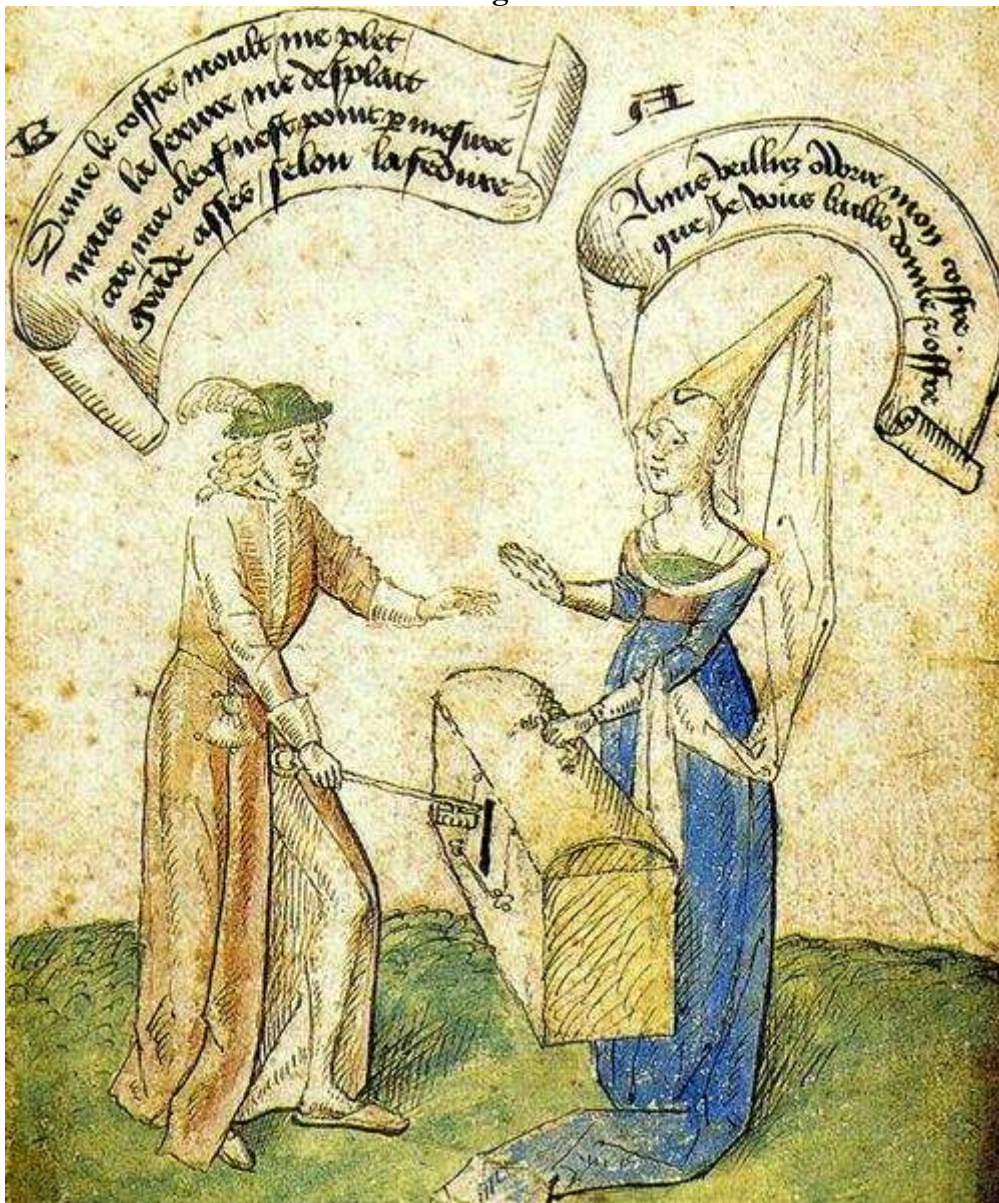 B
Dame le coffre moult me plet
mais la serure me desplait
car ma clef nest point p mesure
grade asses selon la fedure
A
Amis veilliez ovrir mon coffre.
que Je vous baille donne & offre